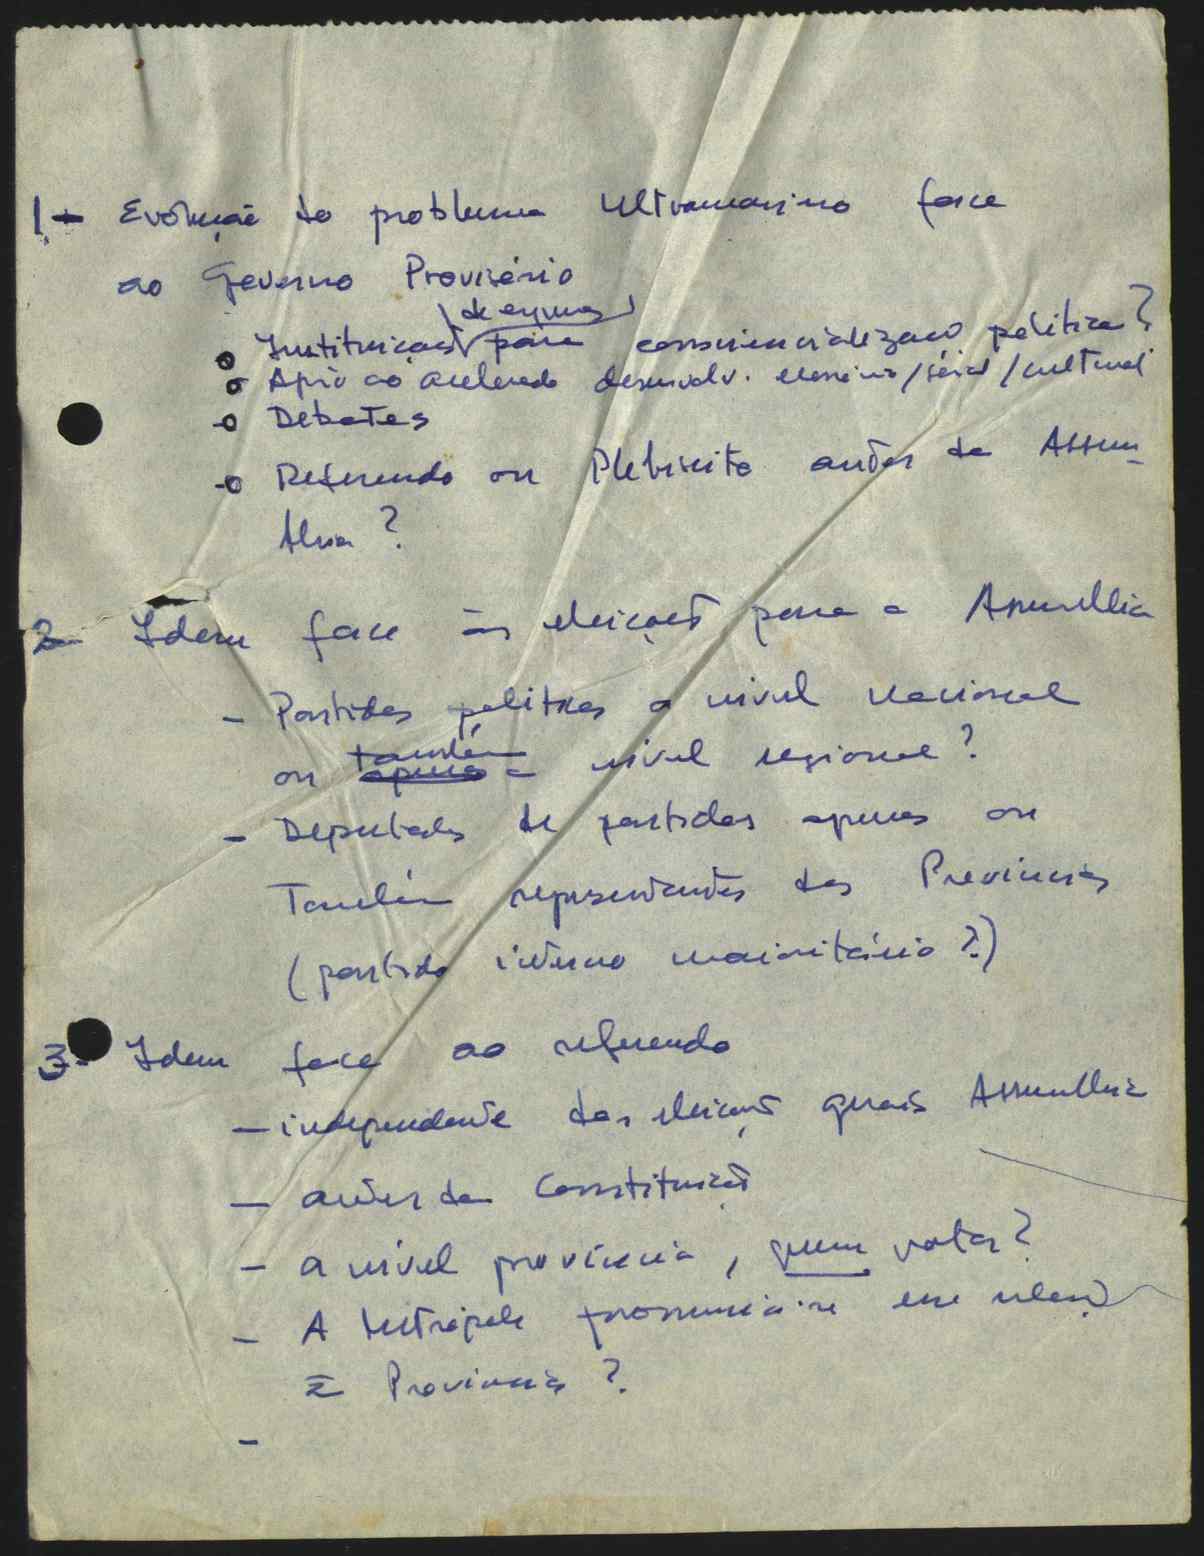 1 - Evolução do problema Ultramarino face
ao Governo Provisório
o Instituição de para consciencialização política?
o Apoio ao acelerado desenvolv. económico/social/cultural
- o Debates
- o Referendo ou Plebiscito antes da Assem-
bleia?
2 - Idem face às eleições para a Assembleia
- Partidos políticos a nível nacional
ou também apenas a nível regional?
- Deputados de partidos apenas ou
Também representantes das Províncias
(partido interno maioritário?)
3 - Idem face ao referendo
- independente das eleições gerais Assembleia
- antes da Constituição
- a nível província, quem votar?
- A Metrópole pronuncia-se em relação
às Províncias?
-